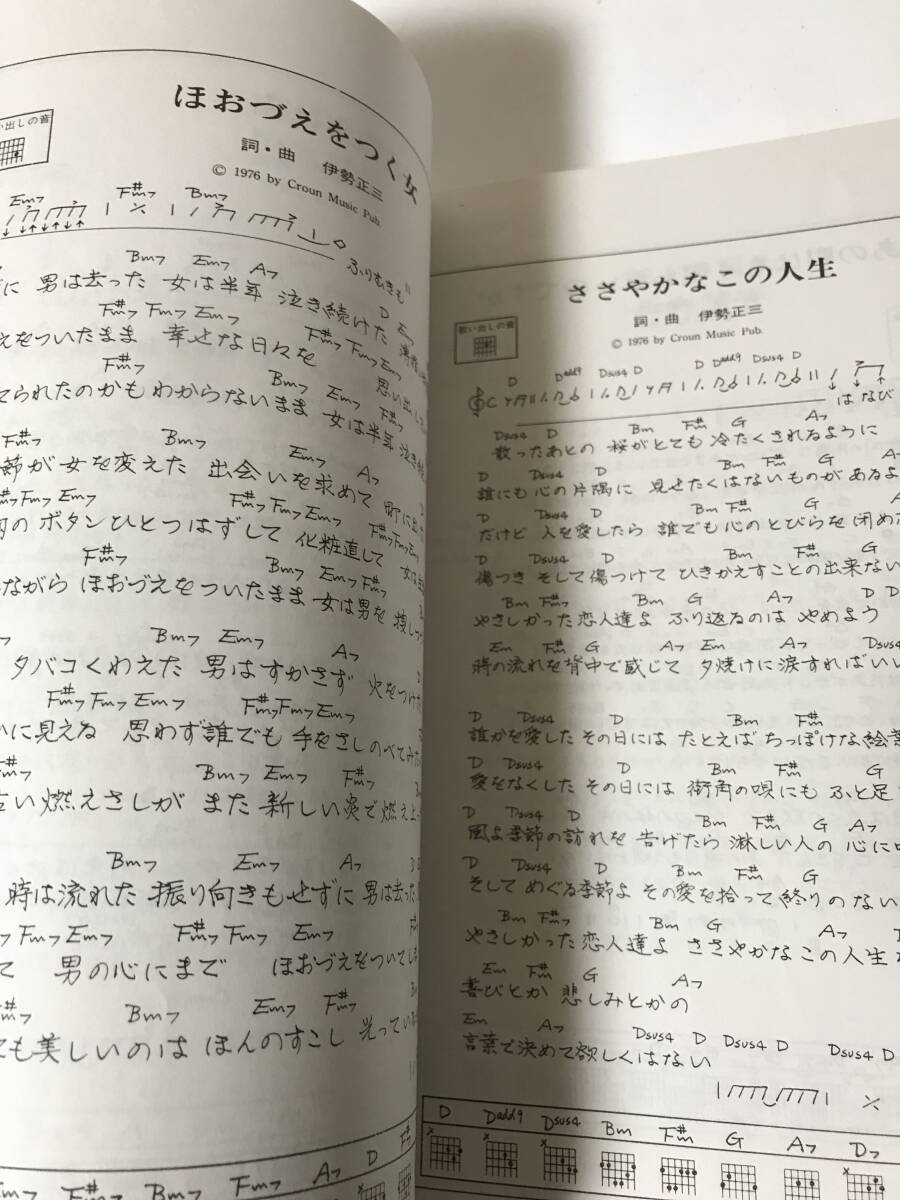 ほおづえをつく女
い出しの音
詞・曲 伊勢正三
© 1976 by Croun Music Pub.
Em7 F#m7 Bm7
ふりむきも
Bm7 Em7 A7
に 男は去った 女は半年 泣き続けた
F#m7 Fm7 Em7 F#m7 Fm7 Em7 D Em
えをついたまま 幸せな日々を 思い出し
F#m7 Bm7 Em7 F#m7
てられたのかも わからないまま 女は半年 泣き
F#m7 Bm7 Em7 A7
節が女を変えた 出会いを求めて 町に出
F#m7 Fm7 Em7 F#m7 Fm7 Em7 F#m7 Fm7 Em
のボタンひとつはずして 化粧直して
F#m7 Bm7 Em7 F#m7
ながら ほおづえをついたまま 女は男を 捜し
Bm7 Em7 A7
タバコくわえた 男はすかさず 火をつけ
F#m7 Fm7 Em7 F#m7 Fm7 Em7
かに見える 思わず誰でも 手をさしのべてみた
Bm7 Em7 F#m7
古い燃えさしが また 新しい炎で 燃え上
Bm7 Em7 A7
時は流れた 振り向きもせずに 男は去った
Fm7 Em7 F#m7 Fm7 Em7
て 男の心にまで ほおづえをついてし
F#m7 Bm7 Em7 F#m7
ても美しいのは ほんのすこし 光ってい
Fm7 A7 D F#
ささやかなこの人生
歌い出しの音
詞・曲 伊勢正三
© 1976 by Croun Music Pub.
D Dadd9 Dsus4 D D Dadd9 Dsus4 D
はなび
Dsus4 D Bm F#m G A7
散ったあとの 桜がとても 冷たくされるように
D Dsus4 D Bm F#m G A7
誰にも心の片隅に 見せたくはないものがあるよ
D Dsus4 D Bm F#m G
だけど 人を愛したら 誰でも心のとびらを 閉め
D Dsus4 D Bm F#m G
傷つき そして傷つけて ひきかえすことの出来ない
Bm F#m Bm G A7 D D
やさしかった恋人達よ ふり返るのは やめよう
Em F#m G A7 Em A7 Dsus4
時の流れを背中で感じて 夕焼けに涙すればいい
D Dsus4 D Bm F#m
誰かを愛した その日には たとえば ちっぽけな絵
D Dsus4 D Bm F#m G
愛をなくした その日には 街角の唄にも ふと足
D Dsus4 D Bm F#m G A7
風よ季節の訪れを 告げたら 淋しい人の 心に
D Dsus4 D Bm F#m G
そして めぐる季節よ その愛を拾って 終りのない
Bm F#m Bm G A7 D
やさしかった 恋人達よ ささやかなこの人生
Em F#m G A7
喜びとか 悲しみとかの
Em A7 Dsus4 D Dsus4 D Dsus4
言葉で決めて欲しくはない
D Dadd9 Dsus4 Bm F#m G A7 D7